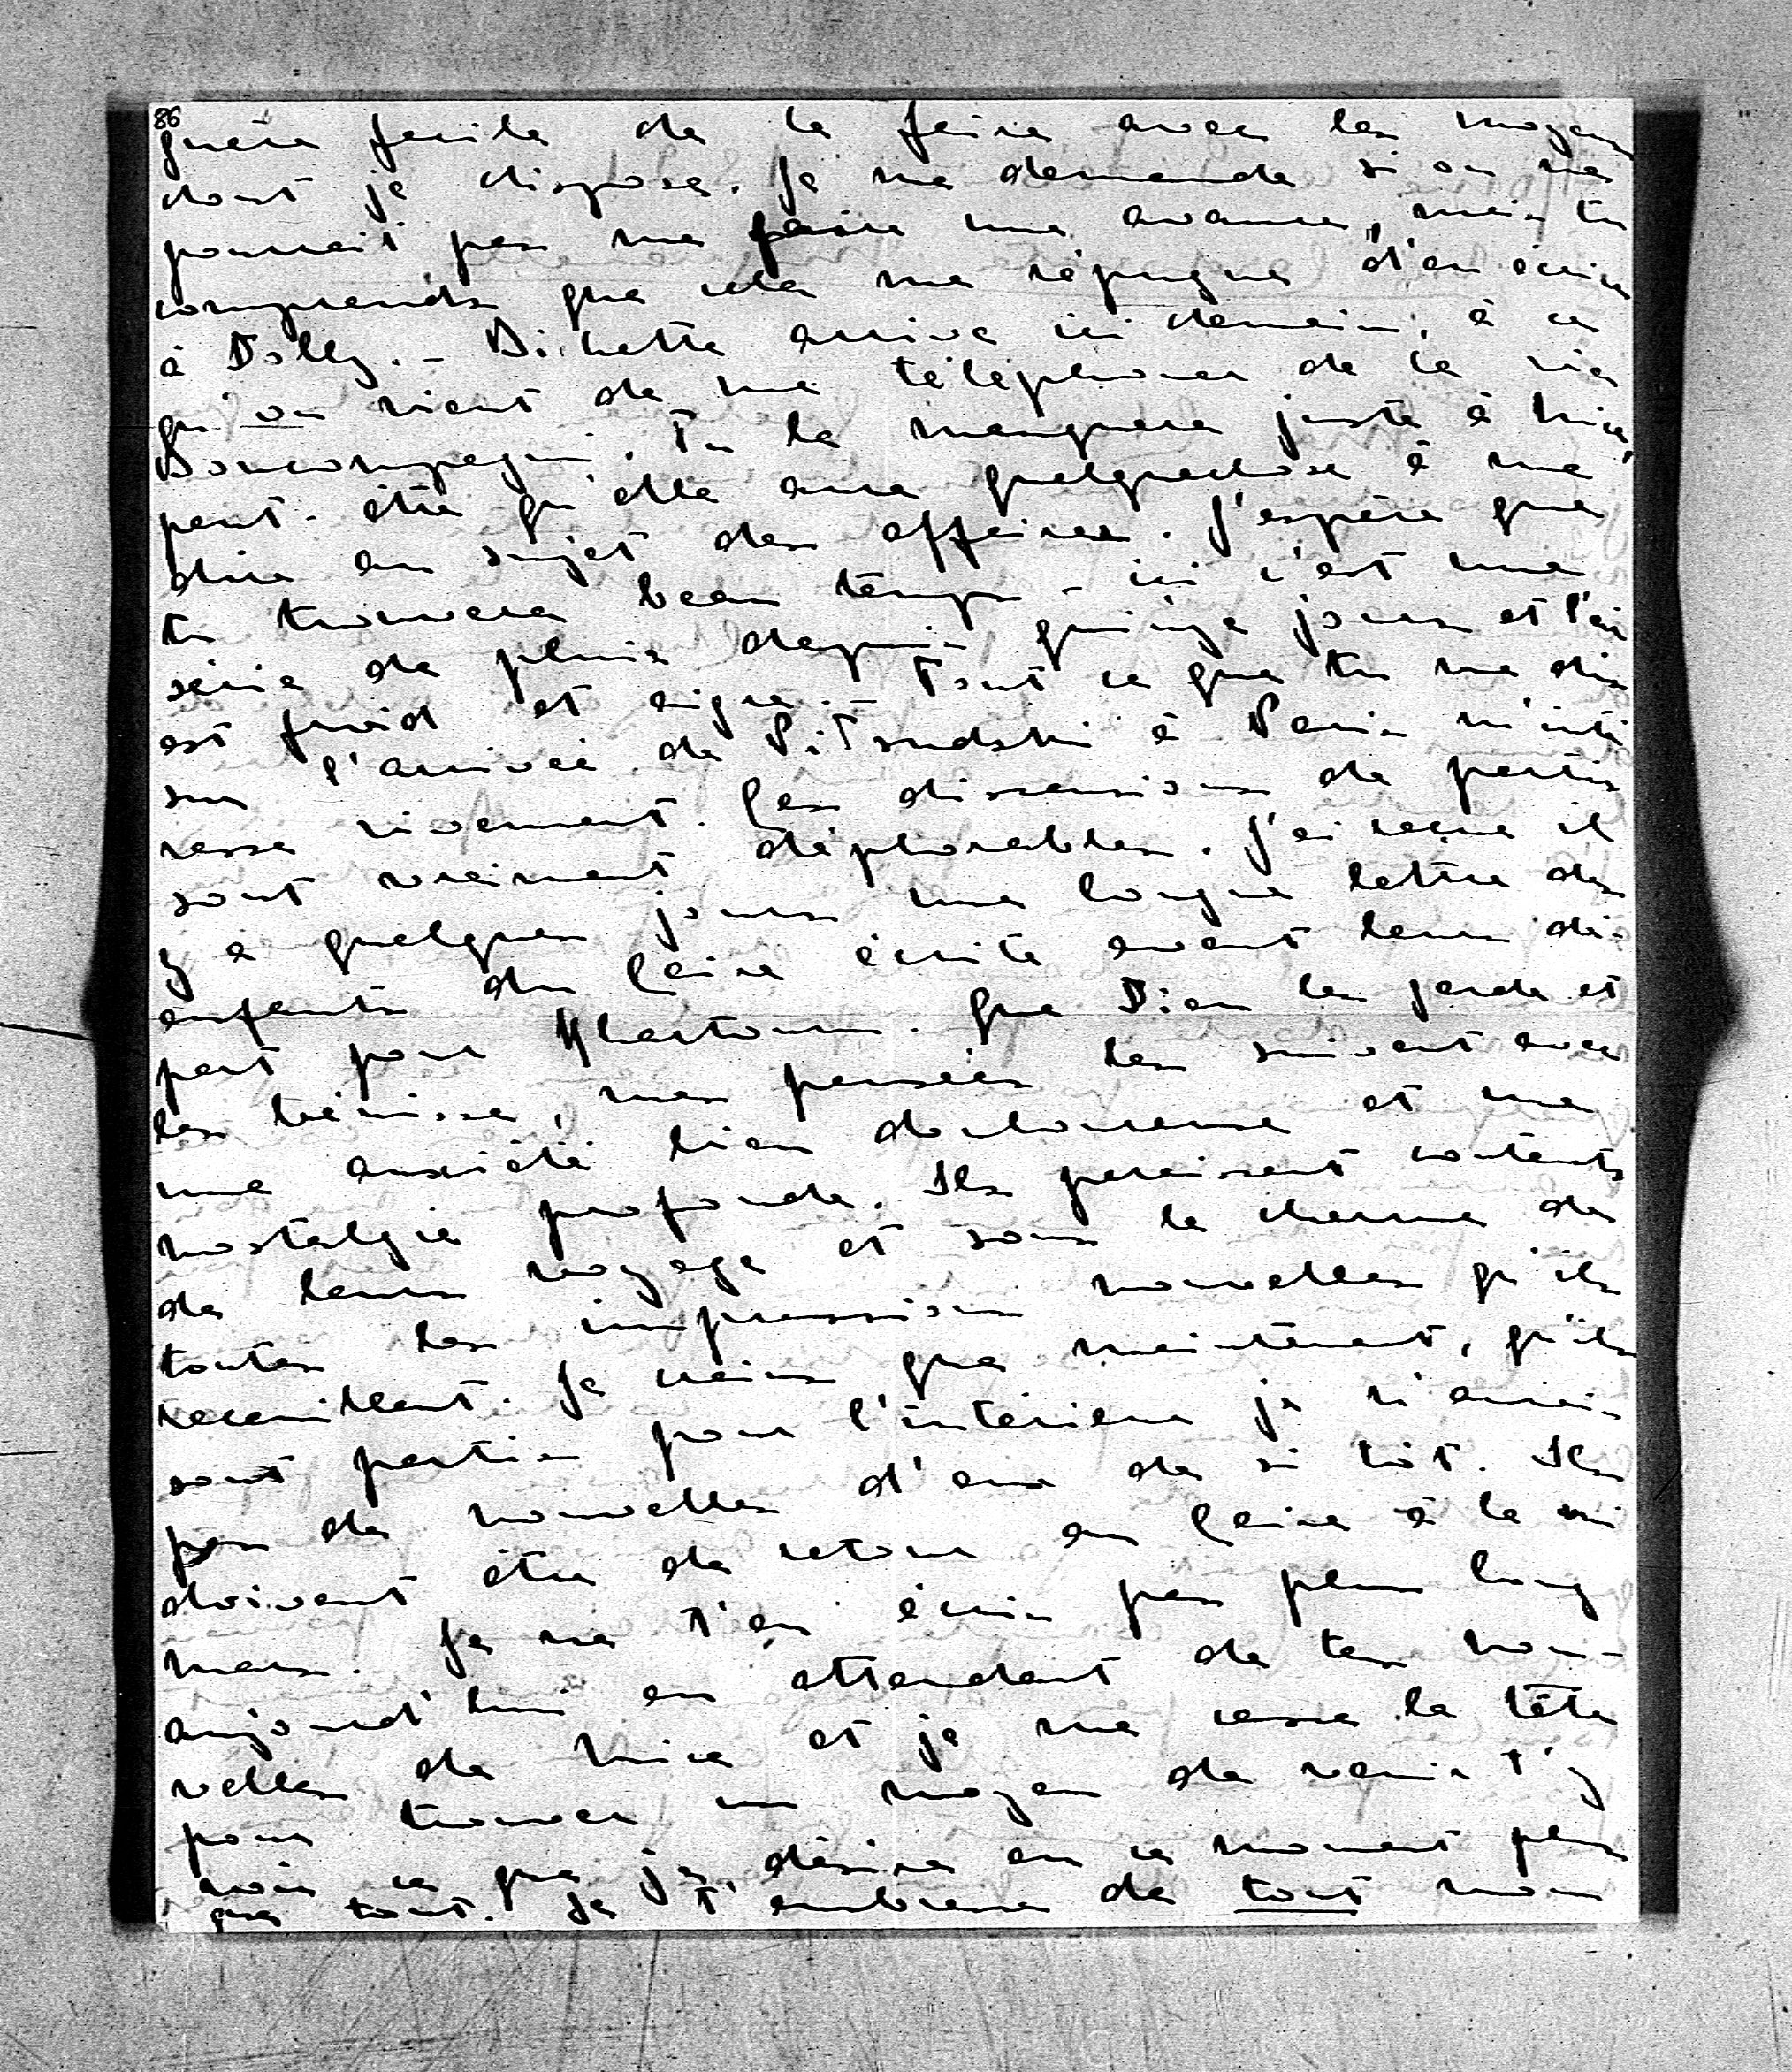 86
guère facile de le faire avec les moyens
dont je dispose. Je me demande si on ne
pourrait pas me faire une avance, mais tu
comprends que cela me répugne d'en écrire
à Dolly. – Bichette arrive ici demain, à ce
qu'on vient de me téléphoner de la via
Boncompagni. Tu la manquera juste à Nice,
peut-être qu'elle aura quelquechose à me
dire au sujet des affaires. J'espère que
tu trouveras beau temps – ici c'est une
série de pluie depuis quinze jours et l'air
est froid et aigre. – Tout ce que tu me dis
sur l'arrivée de Piłsudski à Paris m'inté
resse vivement. Les dissensions de partis
sont vraiment déplorables. J'ai reçue il
y a quelques jours une longue lettre des
enfants du Caire écrite avant leur dé-
part pour Khartoum. Que Dieu les garde et
les bénisse, mes pensées les suivent avec
une anxiété bien douloureuse et une
nostalgie profonde. Ils paraissent contents
de leur voyage et sous le charme de
toutes les impressions nouvelles qu'ils
recueillent. Je crains que maintenant, qu'ils
sont partis pour l'intérieur je n'aurais
pas de nouvelles d'eux de si tôt. Ils
doivent être de retour au Caire à la mi
mars. Je ne t'en écris pas plus long
aujourd'hui en attendant de tes nou-
velles de Nice et je me casse la tête
pour trouver un moyen de venir t'y
voir ce que je désire en ce moment plus
que tout. Je t'embrasse de tout mon